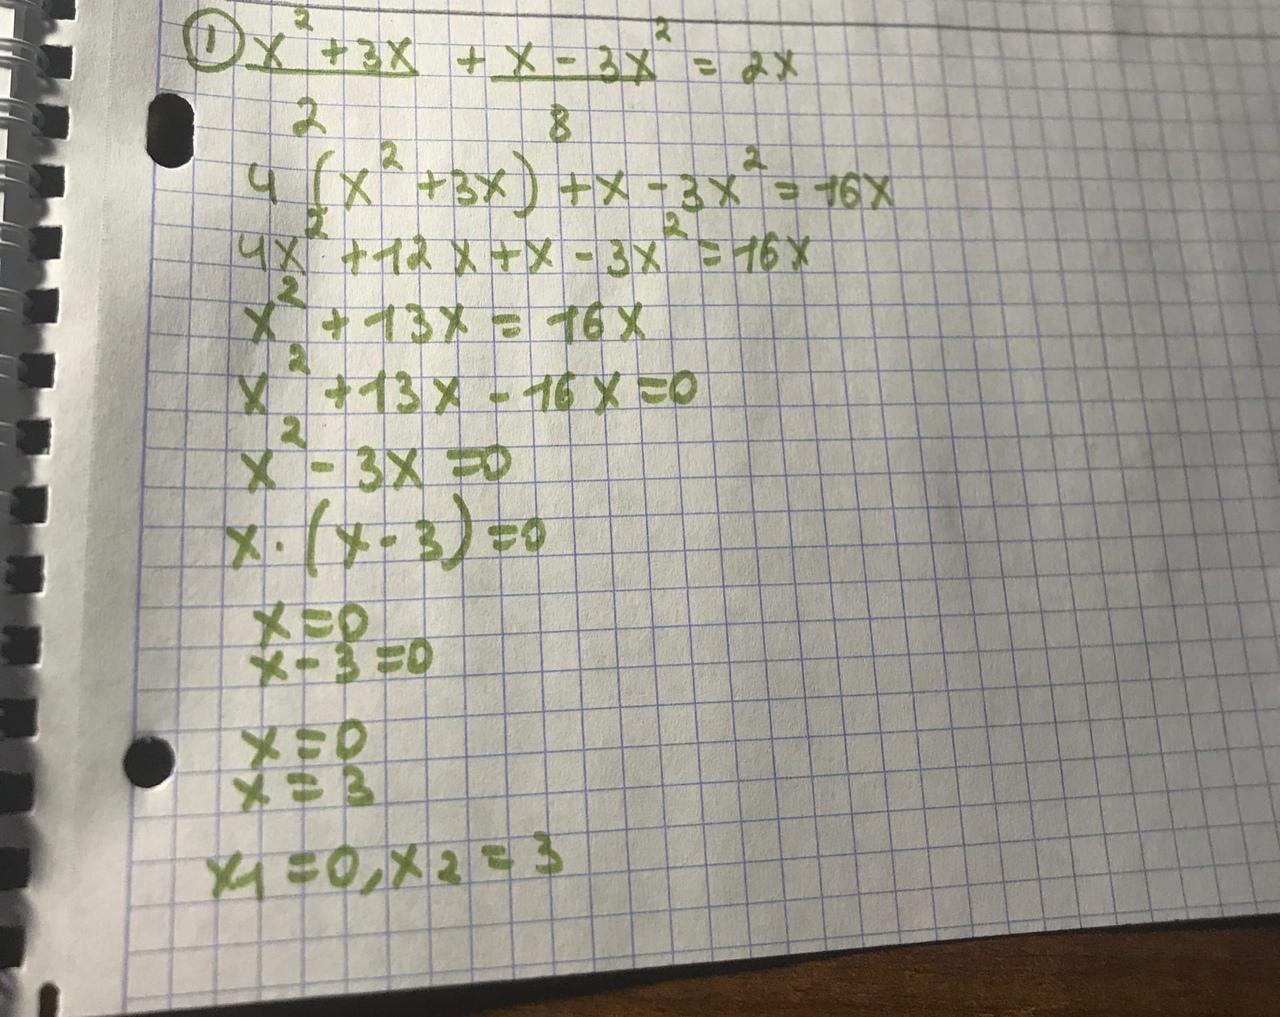 ① x² + 3x + x - 3x² = 2x
2 8
4 (x² + 3x) + x - 3x² = 16x
4x² + 12x + x - 3x² = 16x
x² + 13x = 16x
x² + 13x - 16x = 0
x² - 3x = 0
x · (x - 3) = 0
x = 0
x - 3 = 0
x = 0
x = 3
x1 = 0, x2 = 3